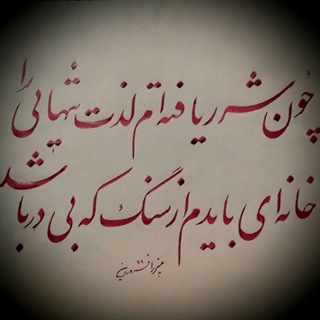 چون شرر یافته‌ام لذت تنهائی را
خانه‌ای بایدم از سنگ که بی در باشد